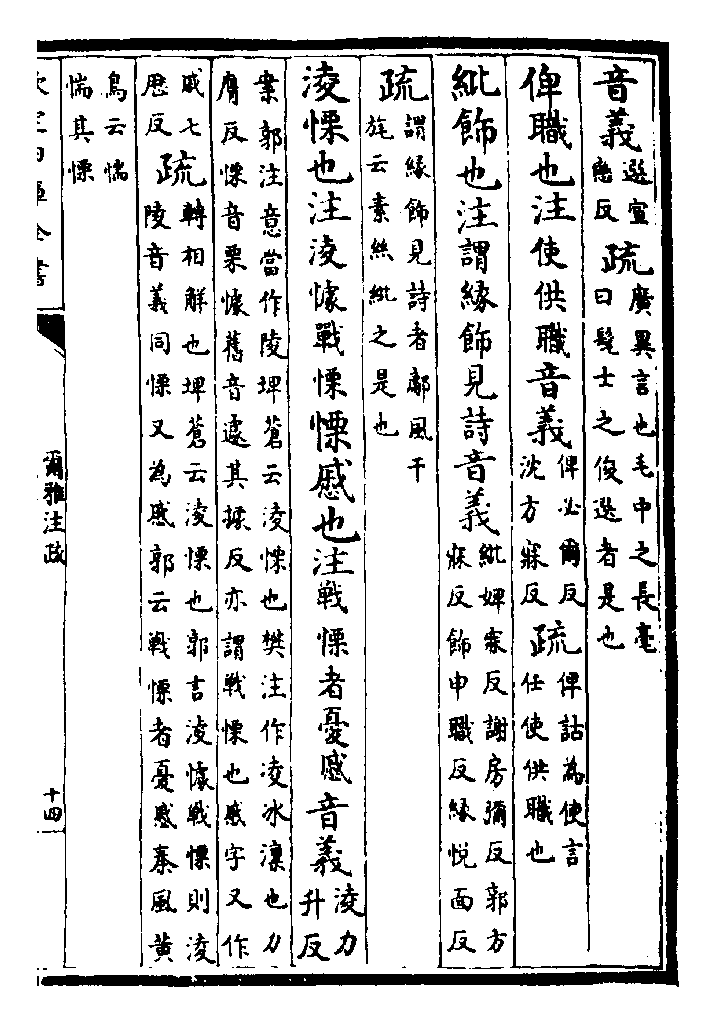 音義選宣戀反疏廣異言也毛中之長毫曰髦士之俊选者是也
俾職也注使供職音義俾必爾反沈方寐反疏俾詁為使言任使供職也
紕飾也注謂緣飾見詩音義紕婢寐反謝房彌反郭方寐反飾申職反緣悅面反
疏謂緣飾見詩者鄘風干旄云素絲紕之是也
淩慄也注淩懅戰慄慄慼也注戰慄者憂慼音義淩力升反
案郭注意當作陵埤蒼云淩慄也樊注作凌冰凜也力膺反慄音栗懅舊音遽其據反亦謂戰慄也慼字又作
戚七厯反疏轉相解也埤蒼云淩慄也郭言淩懅戰慄則淩陵音義同慄又為慼郭云戰慄者憂慼秦風黄
鳥云惴惴其慄
欽定四庫全書
爾雅注疏
十四